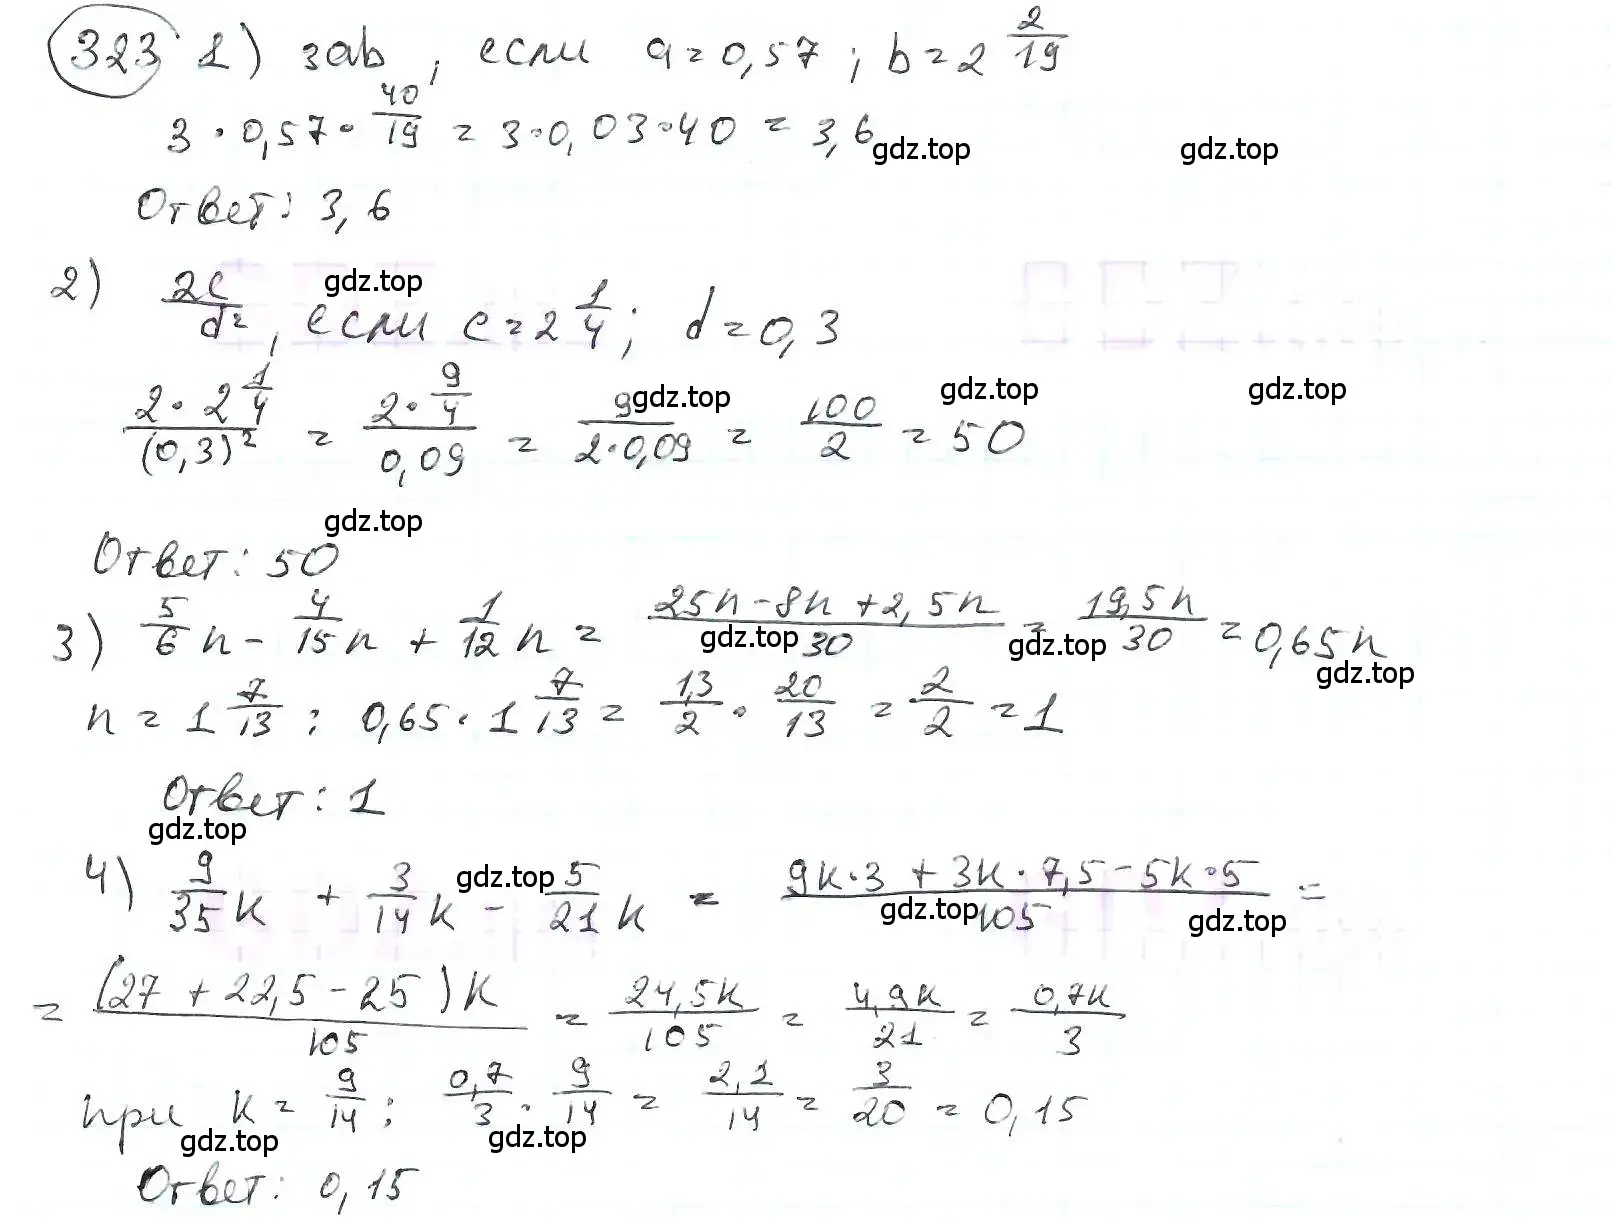 323 1) 3ab, если a = 0,57; b = 2 2/19
3 · 0,57 · 40/19 = 3·0,03·40 = 3,6
gdz.top gdz.top
Ответ: 3,6
2) 2c/d², если c = 2 1/4; d = 0,3
gdz.top
(2 · 2 1/4)/(0,3)² = (2 · 9/4)/0,09 = 9/(2·0,09) = 100/2 = 50
gdz.top gdz.top gdz.top
gdz.top
Ответ: 50
3) 5/6 n - 4/15 n + 1/12 n = (25n - 8n + 2,5n)/30 = 19,5n/30 = 0,65n
gdz.top gdz.top gdz.top
n = 1 7/13 : 0,65 · 1 7/13 = 1,3/2 · 20/13 = 2/2 = 1
Ответ: 1
gdz.top
4) 9/35 k + 3/14 k - 5/21 k = (9k·3 + 3k·7,5 - 5k·5)/105 =
gdz.top gdz.top gdz.top
= (27 + 22,5 - 25)k/105 = 24,5k/105 = 4,9k/21 = 0,7k/3
при k = 9/14 : 0,7/3 · 9/14 = 2,1/14 = 3/20 = 0,15
gdz.top gdz.top
Ответ: 0,15